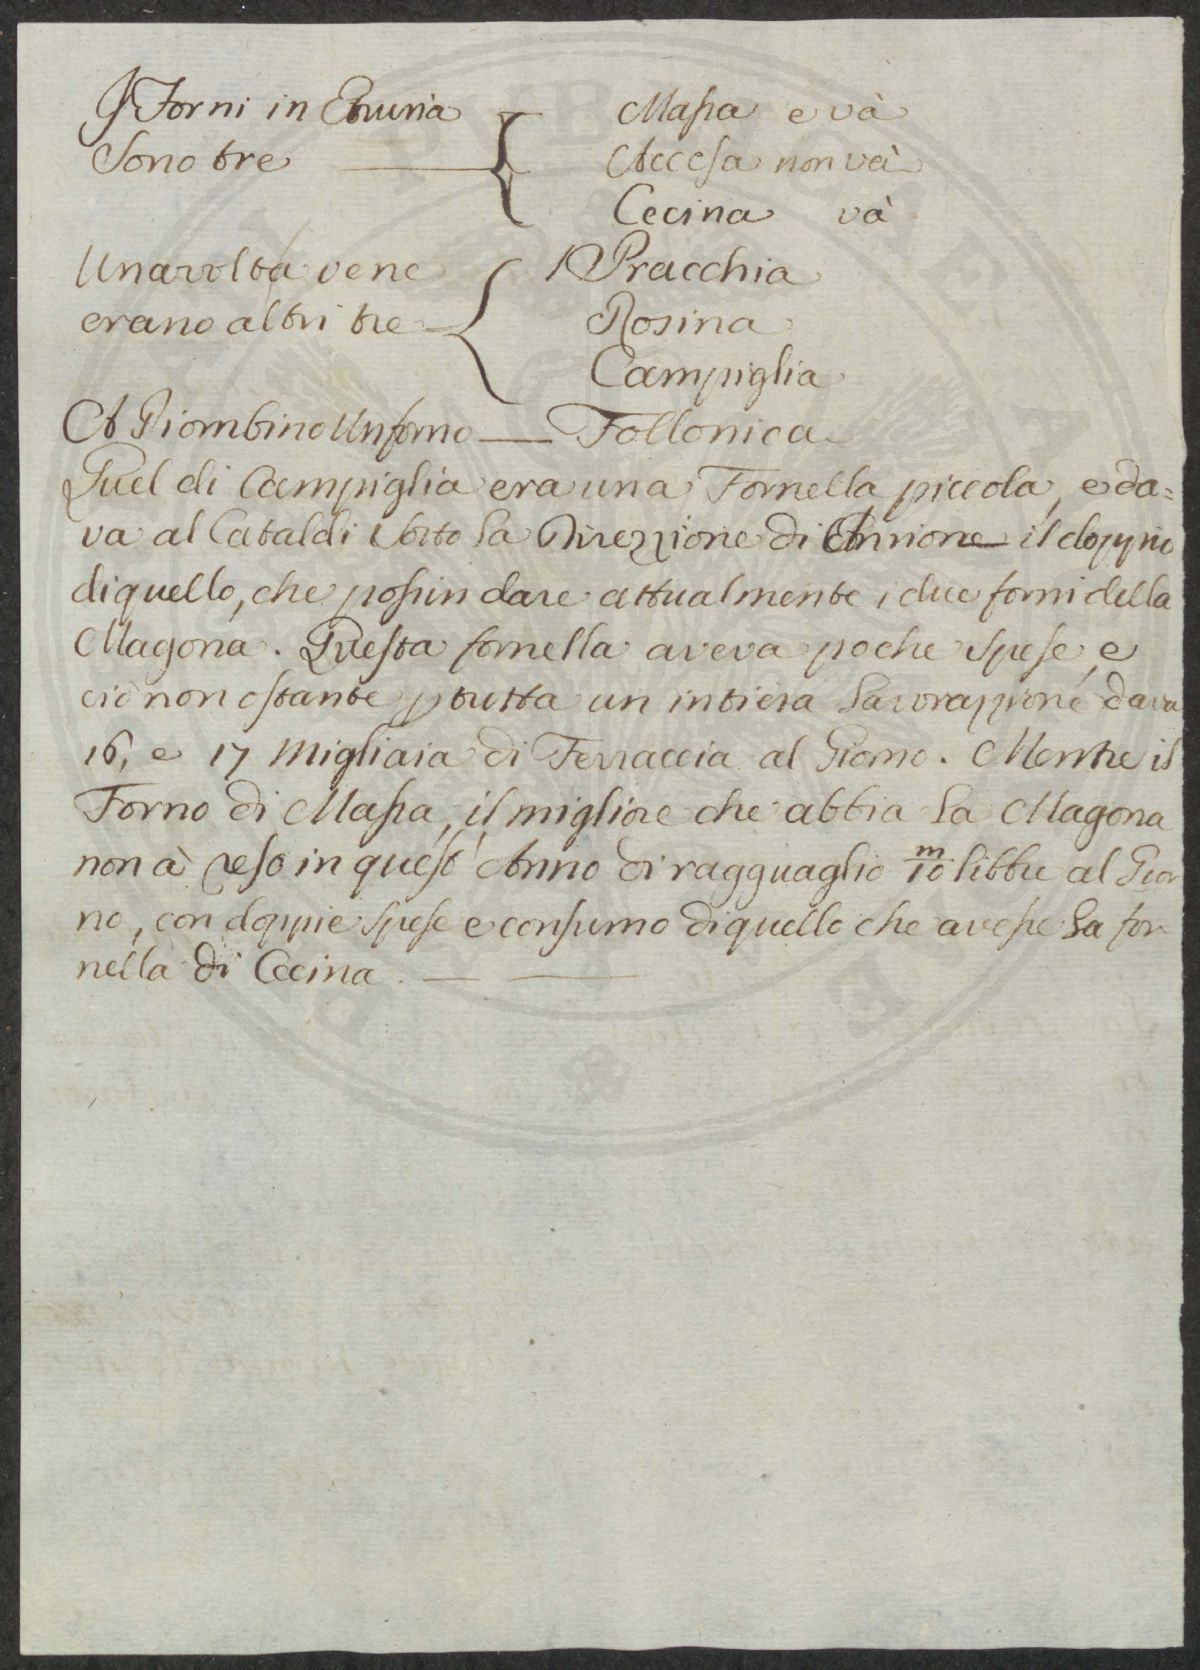 I Forni in Etruria Massa e và
Sono tre Accesa non và
Cecina và
Una volta vene Pracchia
erano altri tre Rosina
Campiglia
A Piombino Un forno — Follonica
Quel di Campiglia era una Fornella piccola, e da=
va al Cataldi sotto la Direzzione di il doppio
di quello, che possin dare attualmente i due forni della
Magona. Questa fornella aveva poche spese, e
ciò non ostante p tutta un intiera lavorazzione dava
16, e 17 Migliaia di Ferraccia al Giorno. Mentre il
Forno di Massa, il migliore che abbia la Magona
non à reso in quest' Anno di ragguaglio m/10 libbre al Gior
no, con doppie spese e consumo di quello che avesse la for
nella di Cecina. — —